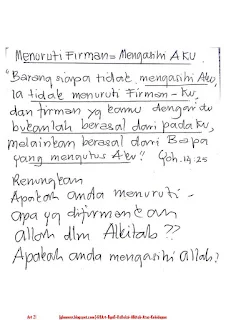 Menuruti Firman = Mengasihi AKU
"Barang siapa tidak mengasihi Aku,
Ia tidak menuruti Firman-Ku,
dan firman yg kamu dengar itu
bukanlah berasal dari padaku,
melainkan berasal dari Bapa
yang mengutus Aku". Yoh. 14:25
Renungkan
Apakah anda menuruti -
apa yg difirmankan
allah dlm Alkitab??
Apakah anda mengasihi allah?